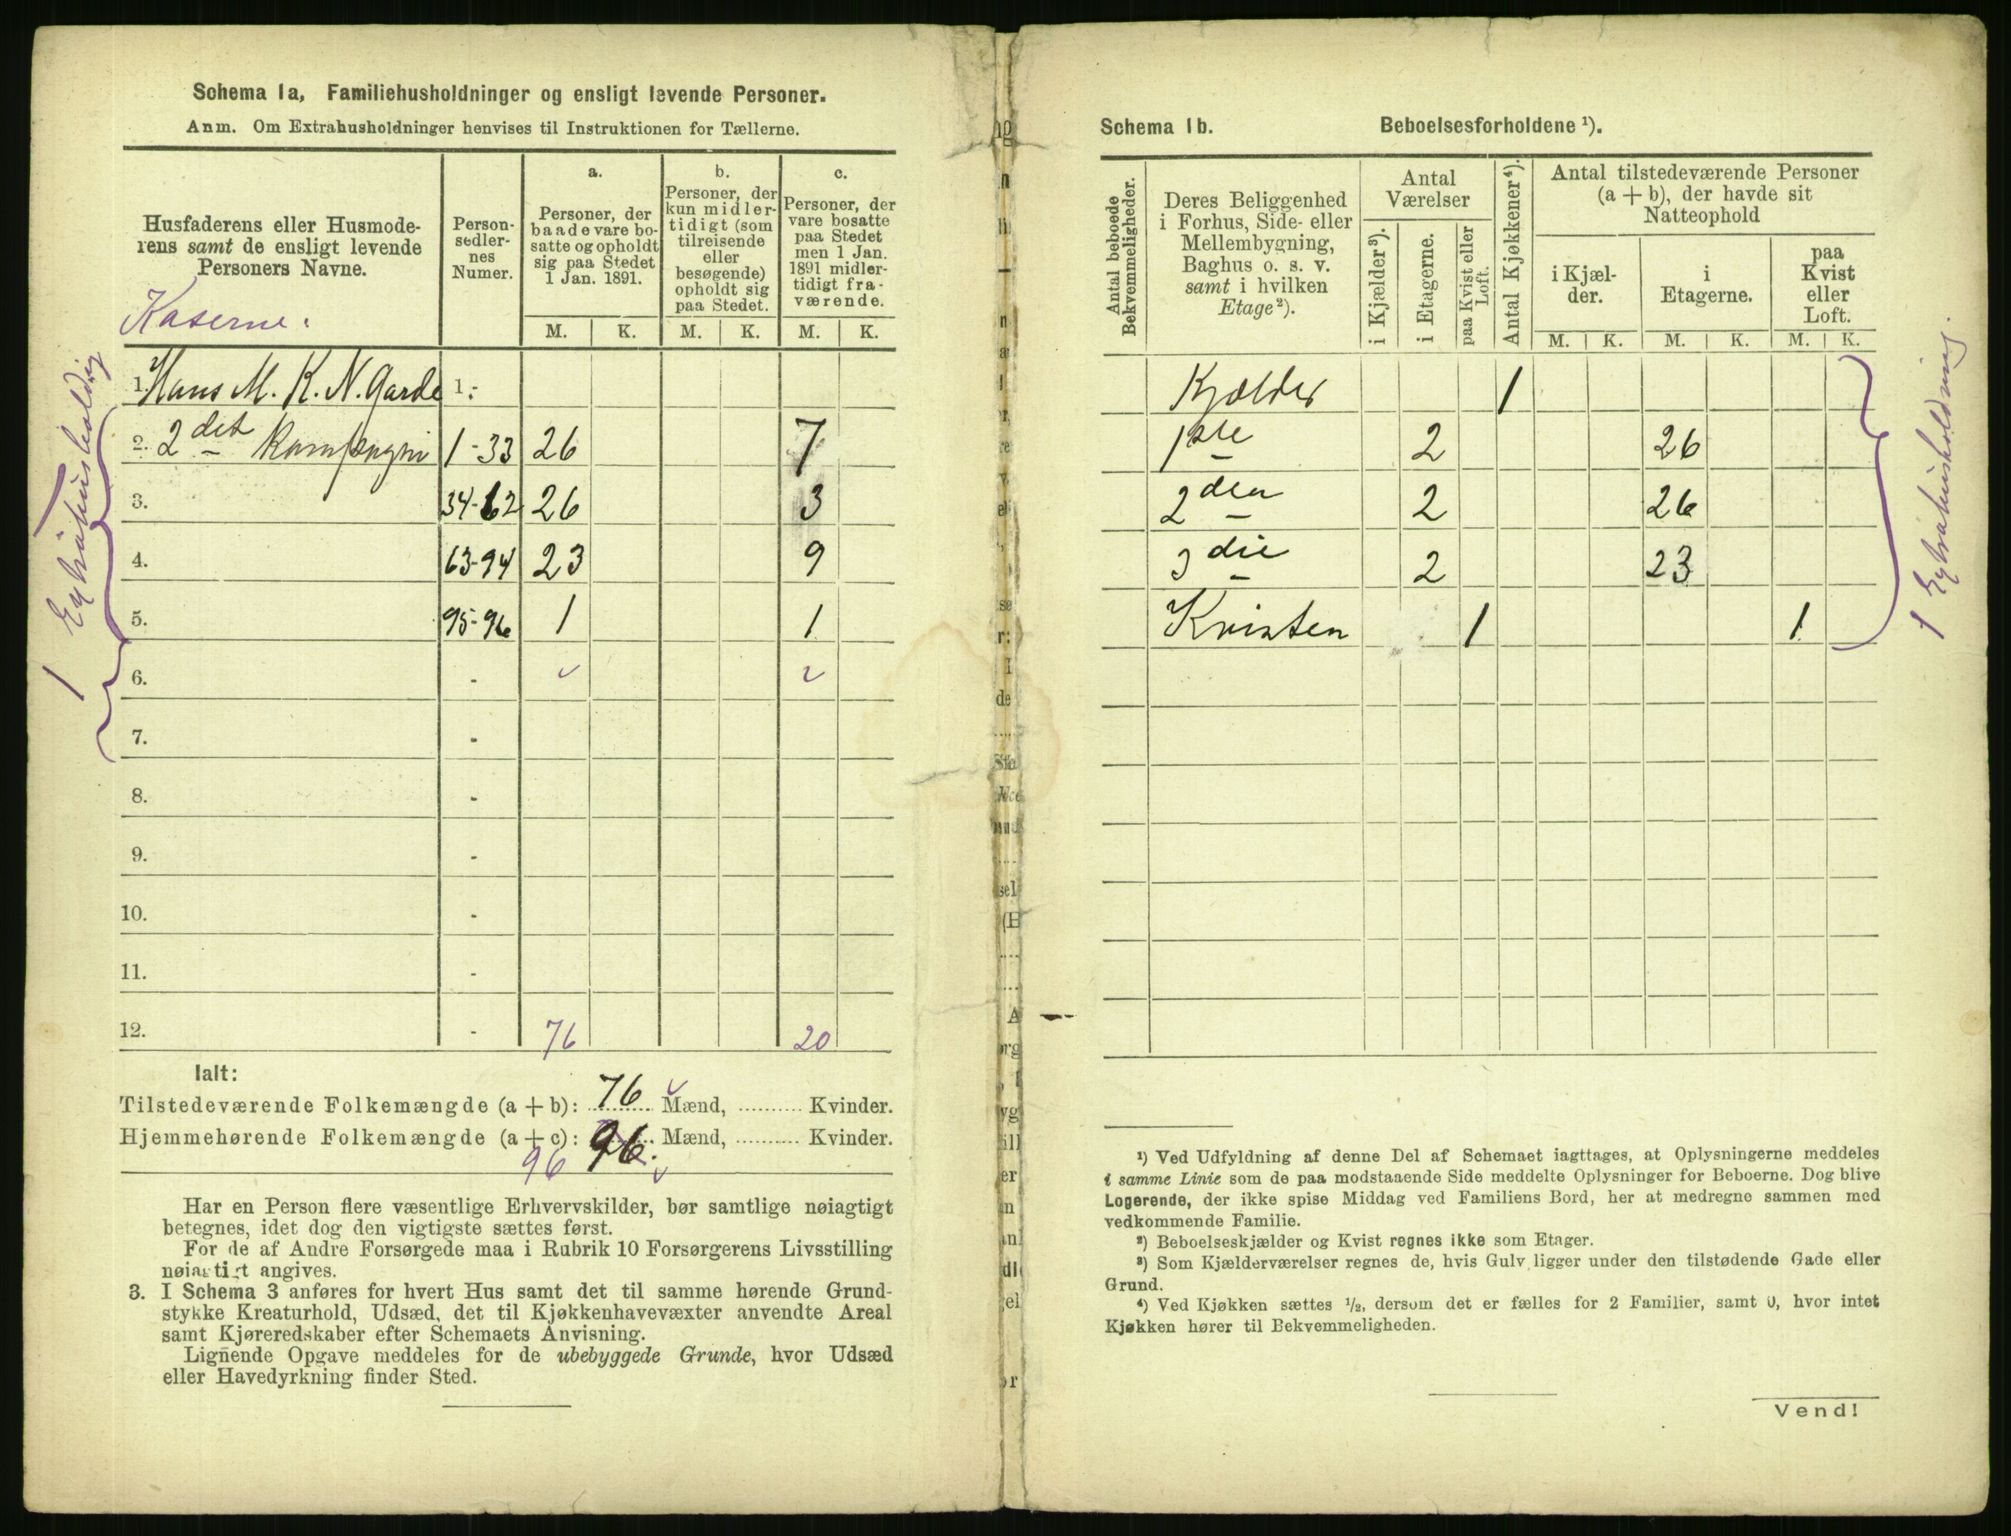 Schema 1a, Familiehusholdninger og ensligt levende Personer.
Anm. Om Extrahusholdninger henvises til Instruktionen for Tællerne.
Husfaderens eller Husmode-
rens samt de ensligt levende
Personers Navne.
Person-
sedler-
nes
Numer.
a.
Personer, der
baade vare bo-
satte og opholdt
sig paa Stedet
1 Jan. 1891.
b.
Personer, der
kun midler-
tidigt (som
tilreisende
eller
besøgende)
opholdt sig
paa Stedet.
c.
Personer, der
vare bosatte
paa Stedet
men 1 Jan.
1891 midler-
tidigt fra-
værende.
M. K. M. K. M. K.
Kaserne.
1. Hans M. K. N. Garde 1 -
2. 2det Kompagni 1-33 26 7
3. 34-62 26 3
4. 63-94 23 9
5. 95-96 1 1
6. -
7. -
8. -
9. -
10. -
11. -
12. - 76 20
1 Extrahusholdning
Ialt:
Tilstedeværende Folkemængde (a + b): 76 Mænd, ........... Kvinder.
Hjemmehørende Folkemængde (a + c): 96. Mænd, ........... Kvinder.
96
Har en Person flere væsentlige Erhvervskilder, bør samtlige nøiagtigt
betegnes, idet dog den vigtigste sættes først.
For de af Andre Forsørgede maa i Rubrik 10 Forsørgerens Livsstilling
nøiagtigt angives.
3. I Schema 3 anføres for hvert Hus samt det til samme hørende Grund-
stykke Kreaturhold, Udsæd, det til Kjøkkenhavevæxter anvendte Areal
samt Kjøreredskaber efter Schemaets Anvisning.
Lignende Opgave meddeles for de ubebyggede Grunde, hvor Udsæd
eller Havedyrkning finder Sted.
Schema 1b. Beboelsesforholdene ¹).
Antal beboede
Bekvemmeligheder.
Deres Beliggenhed
i Forhus, Side- eller
Mellembygning,
Baghus o. s. v.
samt i hvilken
Etage²).
Antal
Værelser
i Kjælder³).
i Etagerne.
paa Kvist eller
Loft.
Antal Kjøkkener⁴).
Antal tilstedeværende Personer
(a + b), der havde sit
Natteophold
i Kjæl-
der.
i
Etagerne.
paa
Kvist
eller
Loft.
M. K. M. K. M. K.
Kjælder 1
1ste 2 26
2den 2 26
3die 2 23
Kvisten 1 1
1 Extrahusholdning.
¹) Ved Udfyldning af denne Del af Schemaet iagttages, at Oplysningerne meddeles
i samme Linie som de paa modstaaende Side meddelte Oplysninger for Beboerne. Dog blive
Logerende, der ikke spise Middag ved Familiens Bord, her at medregne sammen med
vedkommende Familie.
²) Beboelseskjælder og Kvist regnes ikke som Etager.
³) Som Kjælderværelser regnes de, hvis Gulv ligger under den tilstødende Gade eller
Grund.
⁴) Ved Kjøkken sættes ½, dersom det er fælles for 2 Familier, samt 0, hvor intet
Kjøkken hører til Bekvemmeligheden.
Vend!